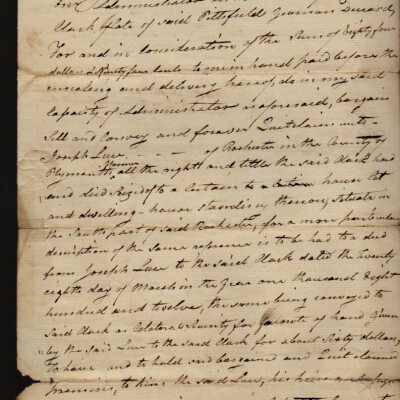 Clark late of said Pittsfield Yeoman Deceased,
For and in consideration of the Sum of Eighty four
dollars & Ninty four cents to me in hand paid before the
ensealing and delivery hereof, do in my said
capacity of Administrator aforesaid, bargain
Sell and Convey and forever Quitclaim unto
Joseph Luce of Rochester in the County of
Plymouth, all the right and title the said Clark had
and died Seized of to a Certain house lot
and dwelling-house Standing thereon, Situate in
the South part of said Rochester, for a more particular
description of the same reference is to be had to a deed
from Joseph Luce to the said Clark dated the twenty
eighth day of March in the Year one thousand Eight
hundred and twelve, the same being conveyed to
Said Clark as Colateral Security for of hand given
by the said Luce to the said Clark for about Sixty dollars,
To have and to hold said bargained and Quit claimed
Premises, to him the said Luce, his heirs and Assigns